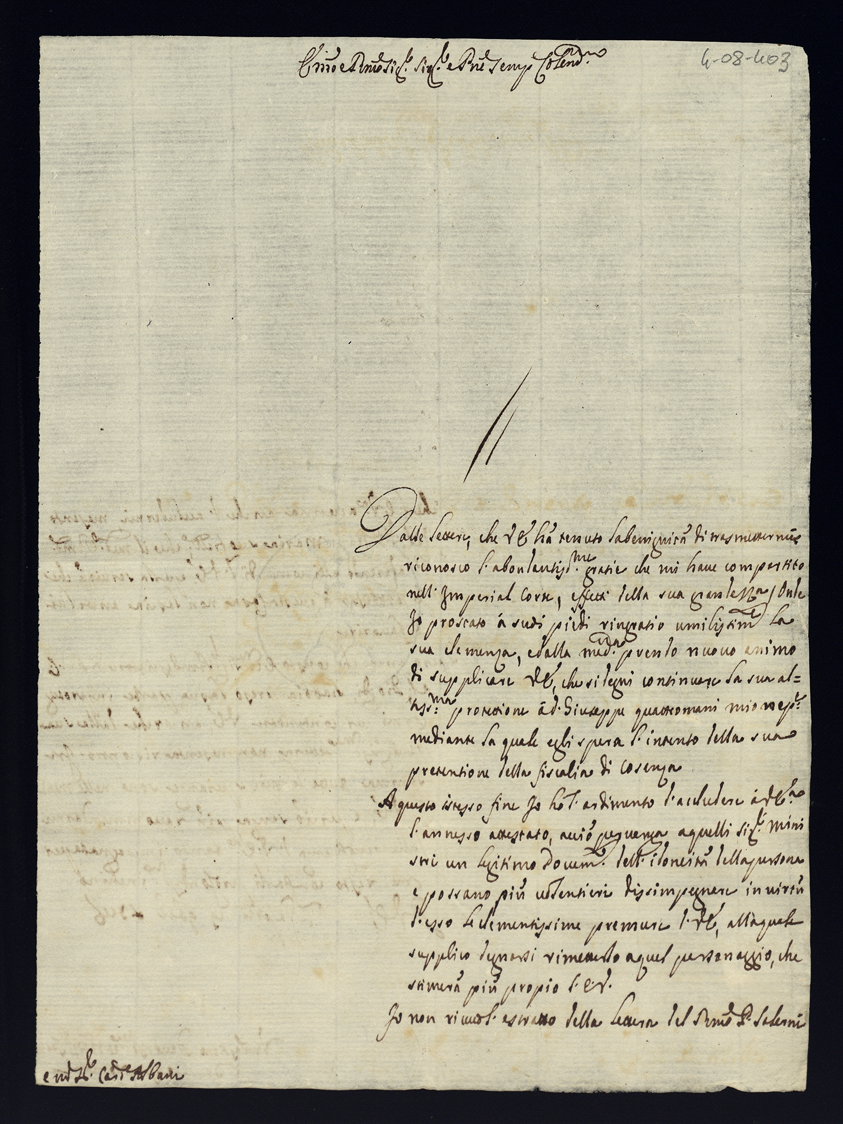 Em̃o e Rmõ Sig.r Sig.r e Prñe Semp Colend.mo
4-08-403
Dalle lettere, che V.E. hà tenuto la benignità di trasmettermi
riconosco l'abondantiss.me gratie che mi have compartito
nell'Imperial Corte, effetti della sua grandezza, Onde
Io proscato á suoi piedi ringratio umilissim.te la
sua clemenza, e dalla med.ma prendo nuovo animo
di supplicare V.E., che si degni continuare la sua al=
tiss.ma protettione á D. Giuseppe quattromani mio nep.te
mediante la quale egli spera l'intento della sua
pretentione della fiscalia di Cosenza
A questo istesso fine Io hò l'ardimento l'accludere á V.E.
l'annesso attestato, acciò pervenga a quelli Sig.ri Mini
stri un legitimo Docum.to dell'idoneità della persona
e possano più volentieri dissimpegnare in virtù
d'esso le clementissime premure di V.E., alla quale
supplico degnarsi rimetterlo a quel personaggio, che
stimerà più propio l'E.V.
Io non ricevei estratto della lettera del Rmõ P. Salerni
e m̃o Sr. Card. Albani